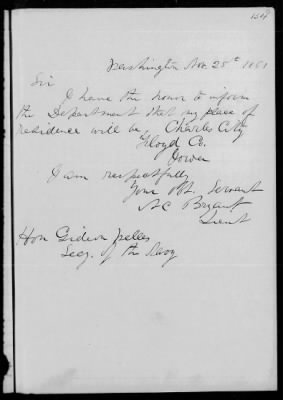 154
Washington Nov. 28th 1861
Sir
I have the honor to inform
the Department that my place of
residence will be, Charles City
Floyd Co.
Iowa
I am respectfully
Your Obt. Servant
A C Bryant
Lieut
Hon Gideon Welles
Secy. of the Navy